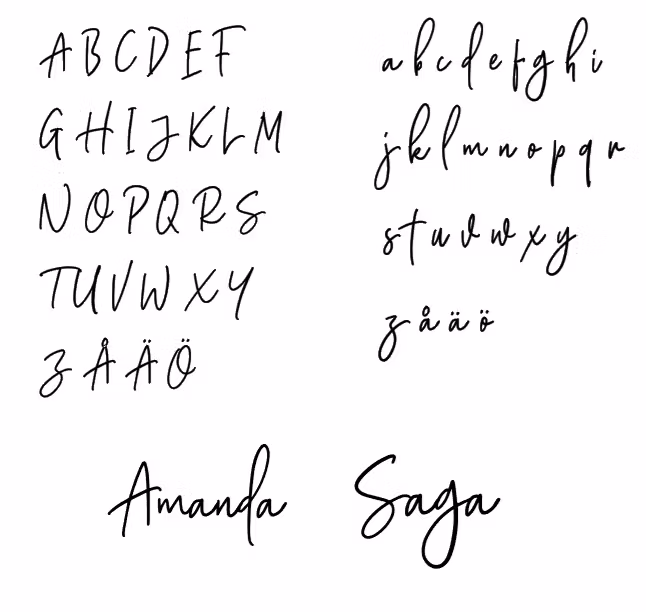 A B C D E F
G H I J K L M
N O P Q R S
T U V W X Y
Z Å Ä Ö
a b c d e f g h i
j k l m n o p q r
s t u v w x y
z å ä ö
Amanda Saga